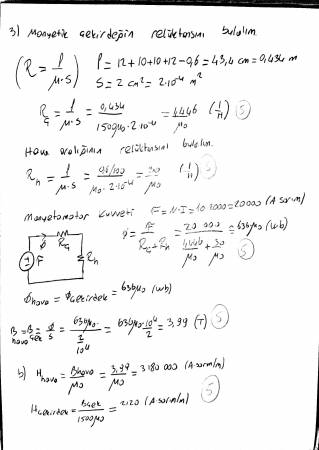 3) Manyetik çekirdeğin relüktansını bulalım.
(R = l / μ.S) l = 12+10+10+12-0,6 = 43,4 cm = 0,434 m
S = 2 cm² = 2.10⁻⁴ m²
Rç = l / μ.S = 0,434 / 1500μ0.2.10⁻⁴ = 1,446 / μ0 (1/H) (5)
Hava aralığının relüktansını bulalım.
Rh = l / μ.S = 0,6/100 / μ0.2.10⁻⁴ = 30 / μ0 (1/H) (5)
Manyetomotor kuvveti F = N.I = 10.2000 = 20000 (A.sarım)
Φ = F / Rç+Rh = 20 000 / 1,446/μ0 + 30/μ0 = 636μ0 (wb) (5)
Φ Rç F Rh
Φhava = Φçekirdek = 636μ0 (wb)
Bhava = Bçek = Φ / S = 636μ0 / 2/10⁴ = 636μ0.10⁴ / 2 = 3,99 (T) (5)
b) Hhava = Bhava / μ0 = 3,99 / μ0 = 3180 000 (A.sarım/m)
Hçekirdek = Bçek / 1500μ0 = 2120 (A.sarım/m) (5)